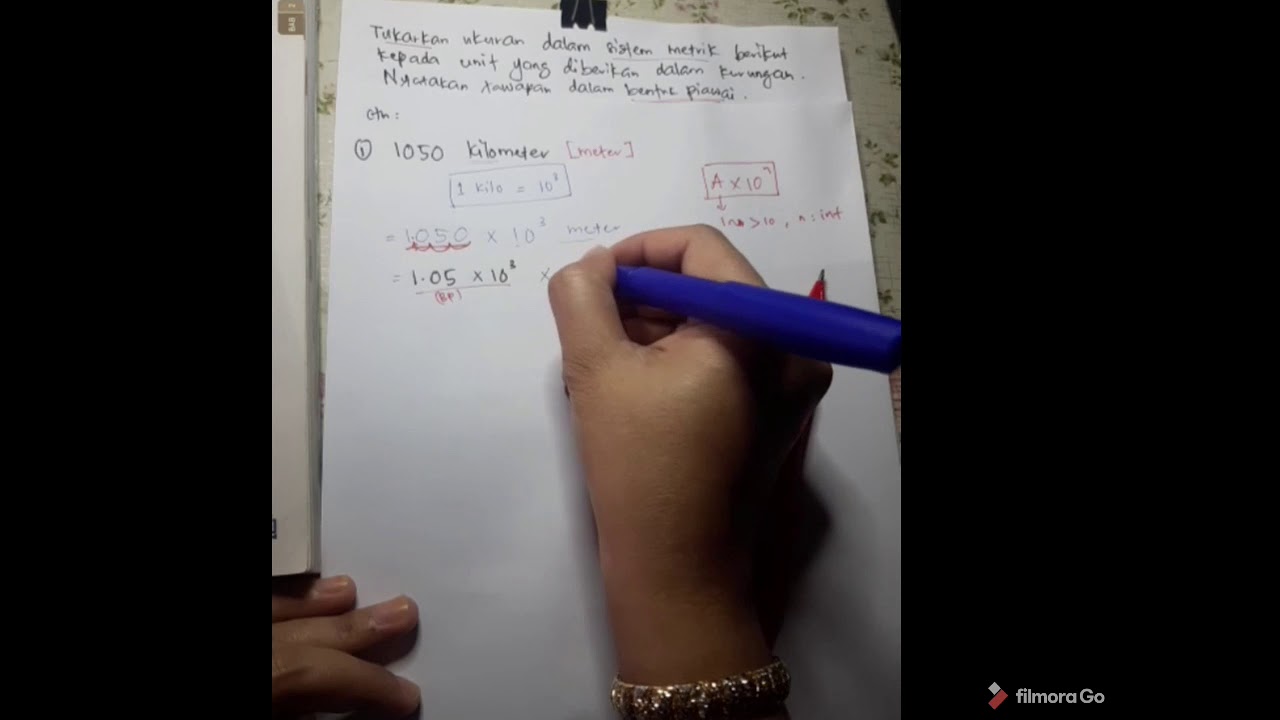 BAB 2
Tukarkan ukuran dalam sistem metrik berikut
kepada unit yang diberikan dalam kurungan.
Nyatakan jawapan dalam bentuk piawai.
Cth:
① 1050 kilometer [meter]
1 kilo = 10³
A × 10ⁿ
> 10, n: int
= 1.050 × 10³ meter
= 1.05 × 10³ ×
(BP)
filmoraGo